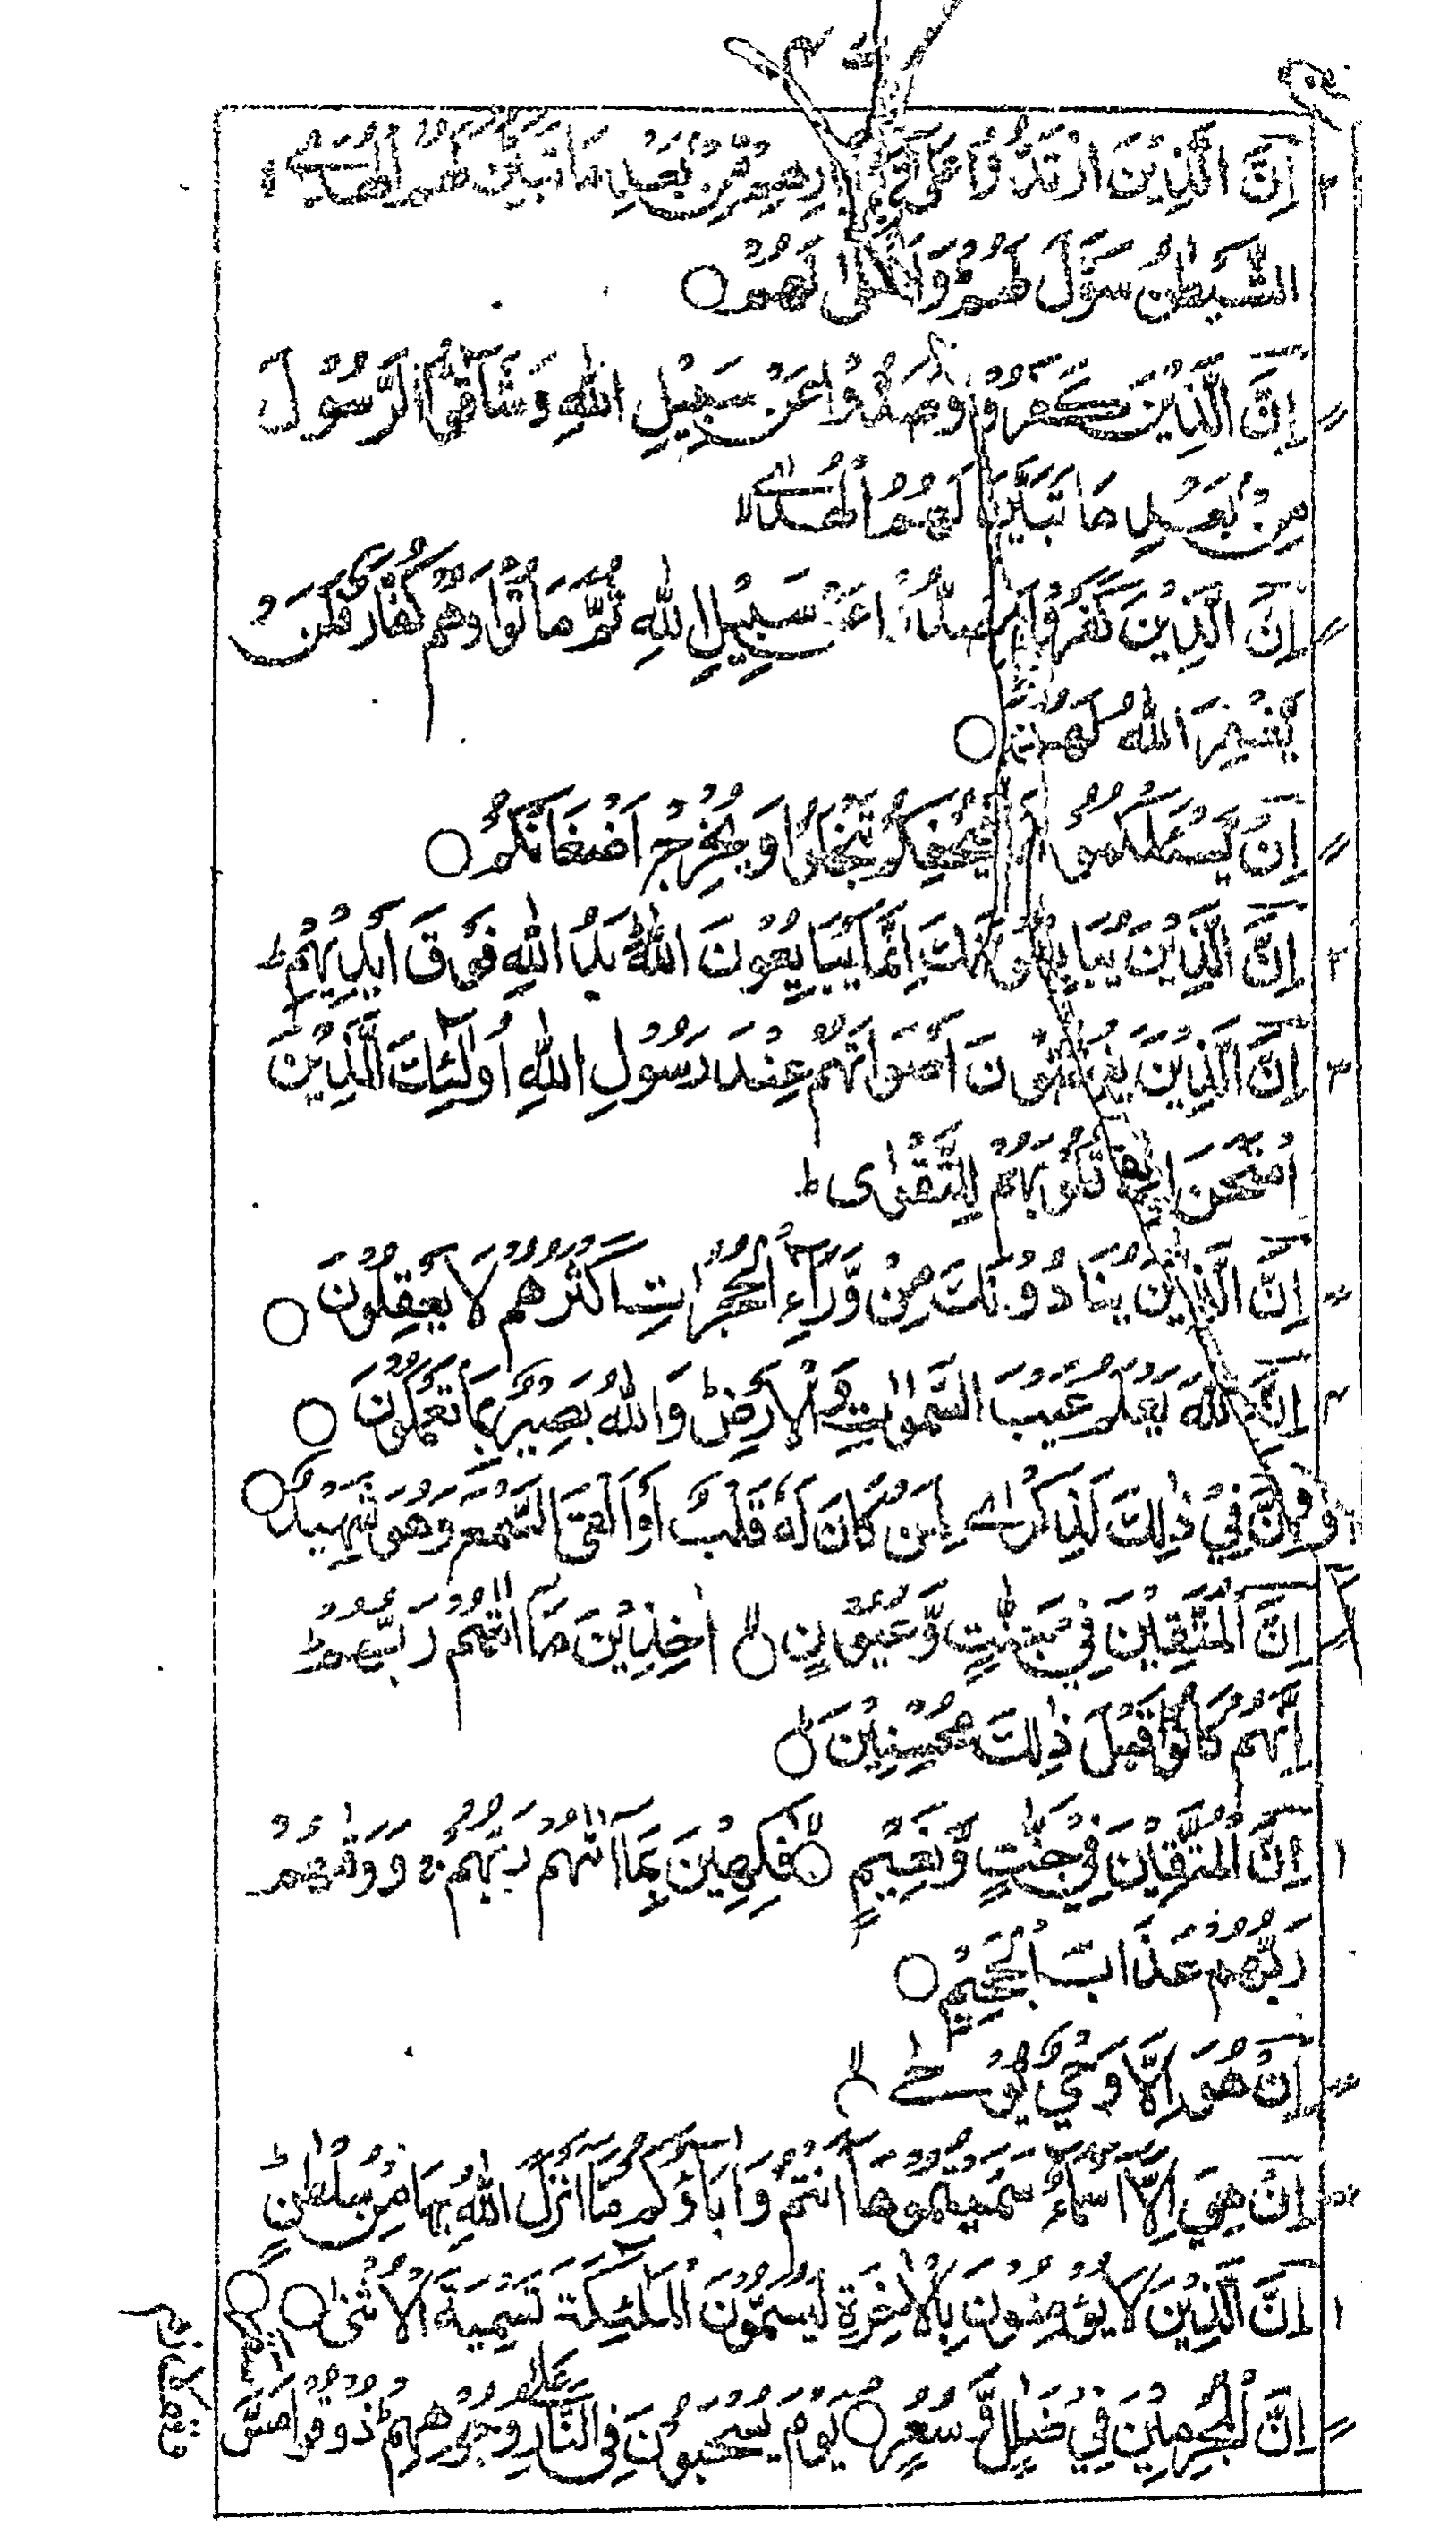 اِنَّ الَّذِيْنَ ارْتَدُّوْا عَلٰٓى اَدْبَارِهِمْ مِّنْۢ بَعْدِ مَا تَبَيَّنَ لَهُمُ الْهُدَے ۙ
الشَّيْطٰنُ سَوَّلَ لَهُمْ ؕ وَاَمْلٰى لَهُمْ ○
اِنَّ الَّذِيْنَ كَفَرُوْا وَصَدُّوْا عَنْ سَبِيْلِ اللّٰهِ وَشَآقُّوا الرَّسُوْلَ
مِنْۢ بَعْدِ مَا تَبَيَّنَ لَهُمُ الْهُدٰے ۙ
اِنَّ الَّذِيْنَ كَفَرُوْا وَصَدُّوْا عَنْ سَبِيْلِ اللّٰهِ ثُمَّ مَاتُوْا وَهُمْ كُفَّارٌ فَلَنْ
يَّغْفِرَ اللّٰهُ لَهُمْ ○
اِنْ يَّسْـَٔلْكُمُوْهَا فَيُحْفِكُمْ تَبْخَلُوْا وَيُخْرِجْ اَضْغَانَكُمْ ○
۲ اِنَّ الَّذِيْنَ يُبَايِعُوْنَكَ اِنَّمَا يُبَايِعُوْنَ اللّٰهَ ؕ يَدُ اللّٰهِ فَوْقَ اَيْدِيْهِمْ ؕ
۳ اِنَّ الَّذِيْنَ يَغُضُّوْنَ اَصْوَاتَهُمْ عِنْدَ رَسُوْلِ اللّٰهِ اُولٰٓئِكَ الَّذِيْنَ
امْتَحَنَ اللّٰهُ قُلُوْبَهُمْ لِلتَّقْوٰى ؕ
اِنَّ الَّذِيْنَ يُنَادُوْنَكَ مِنْ وَّرَآءِ الْحُجُرٰتِ اَكْثَرُهُمْ لَا يَعْقِلُوْنَ ○
اِنَّ اللّٰهَ يَعْلَمُ غَيْبَ السَّمٰوٰتِ وَالْاَرْضِ ؕ وَاللّٰهُ بَصِيْرٌۢ بِمَا تَعْمَلُوْنَ ○
اِنَّ فِيْ ذٰلِكَ لَذِكْرٰے لِمَنْ كَانَ لَهٗ قَلْبٌ اَوْ اَلْقَى السَّمْعَ وَهُوَ شَهِيْدٌ ○
اِنَّ الْمُتَّقِيْنَ فِيْ جَنّٰتٍ وَّعُيُوْنٍ ○ۙ اٰخِذِيْنَ مَآ اٰتٰىهُمْ رَبُّهُمْ ؕ
اِنَّهُمْ كَانُوْا قَبْلَ ذٰلِكَ مُحْسِنِيْنَ ○ؕ
۱ اِنَّ الْمُتَّقِيْنَ فِيْ جَنّٰتٍ وَّنَعِيْمٍ ○ۙ فٰكِهِيْنَ بِمَآ اٰتٰىهُمْ رَبُّهُمْ ۚ وَوَقٰىهُمْ
رَبُّهُمْ عَذَابَ الْجَحِيْمِ ○
اِنْ هُوَ اِلَّا وَحْيٌ يُّوْحٰے ○ۙ
اِنْ هِيَ اِلَّآ اَسْمَآءٌ سَمَّيْتُمُوْهَآ اَنْتُمْ وَاٰبَآؤُكُمْ مَّآ اَنْزَلَ اللّٰهُ بِهَا مِنْ سُلْطٰنٍ ؕ
۱ اِنَّ الَّذِيْنَ لَا يُؤْمِنُوْنَ بِالْاٰخِرَةِ لَيُسَمُّوْنَ الْمَلٰٓئِكَةَ تَسْمِيَةَ الْاُنْثٰى ○
اِنَّ الْمُجْرِمِيْنَ فِيْ ضَلٰلٍ وَّسُعُرٍ ○ يَوْمَ يُسْحَبُوْنَ فِى النَّارِ عَلٰى وُجُوْهِهِمْ ؕ ذُوْقُوْا مَسَّ